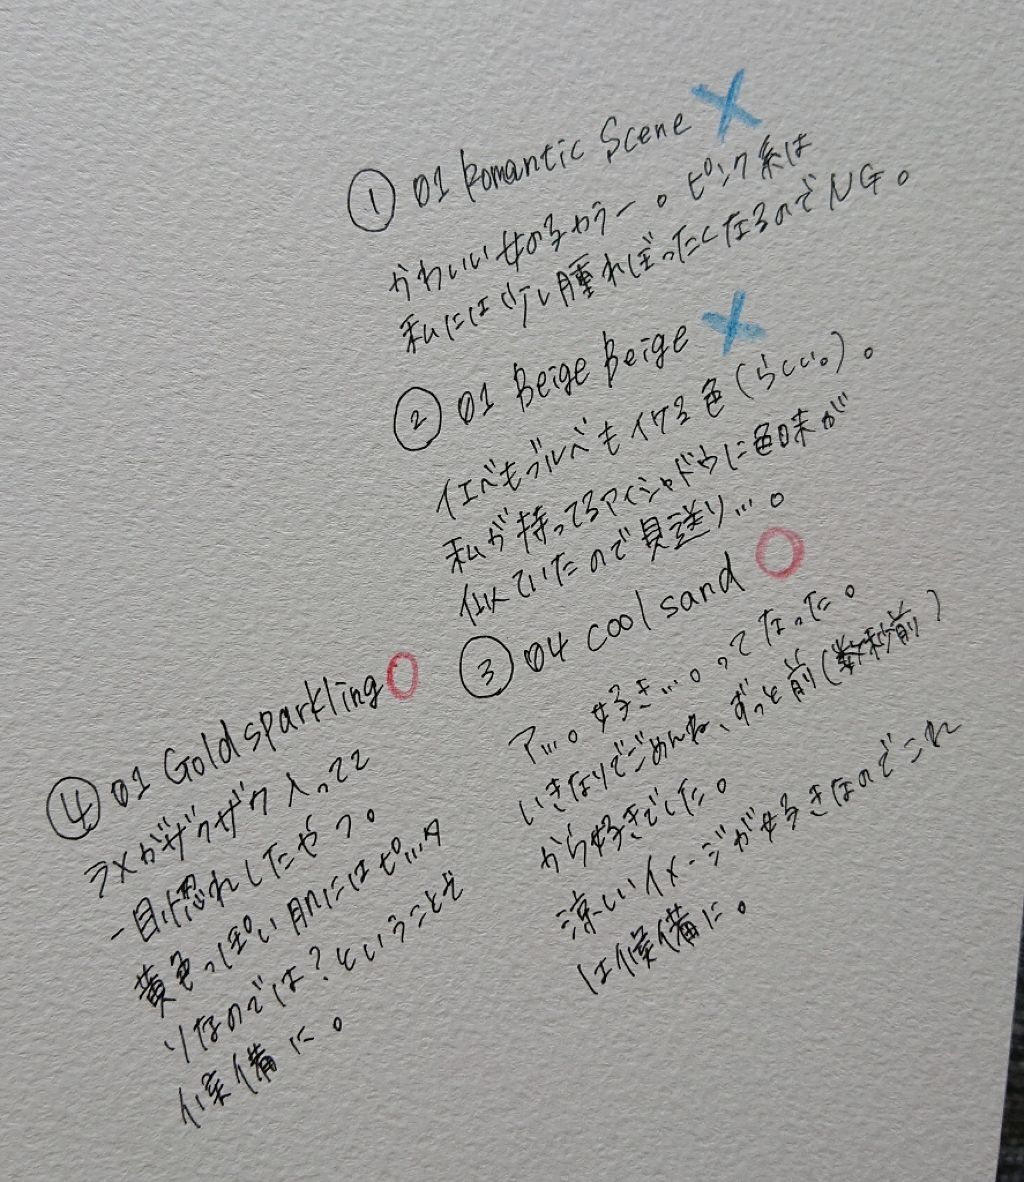 ① 01 Romantic Scene X
かわいい女の子カラー。ピンク系は
私には少し腫れぼったくなるのでNG。
② 01 Beige Beige X
イエベもブルベもイケる色(らしい。)。
私が持ってるアイシャドウに色味が
似ていたので見送り…。
③ 04 cool sand ○
ア…。好き…。ってなった。
いきなりでごめんね、ずっと前(数秒前)
から好きでした。
涼しいイメージが好きなのでこれ
は候備に。
④ 01 Gold sparkling ○
ラメがザクザク入ってて
一目惚れしたやつ。
黄色っぽい肌にはピッタ
リなのでは?ということで
候備に。